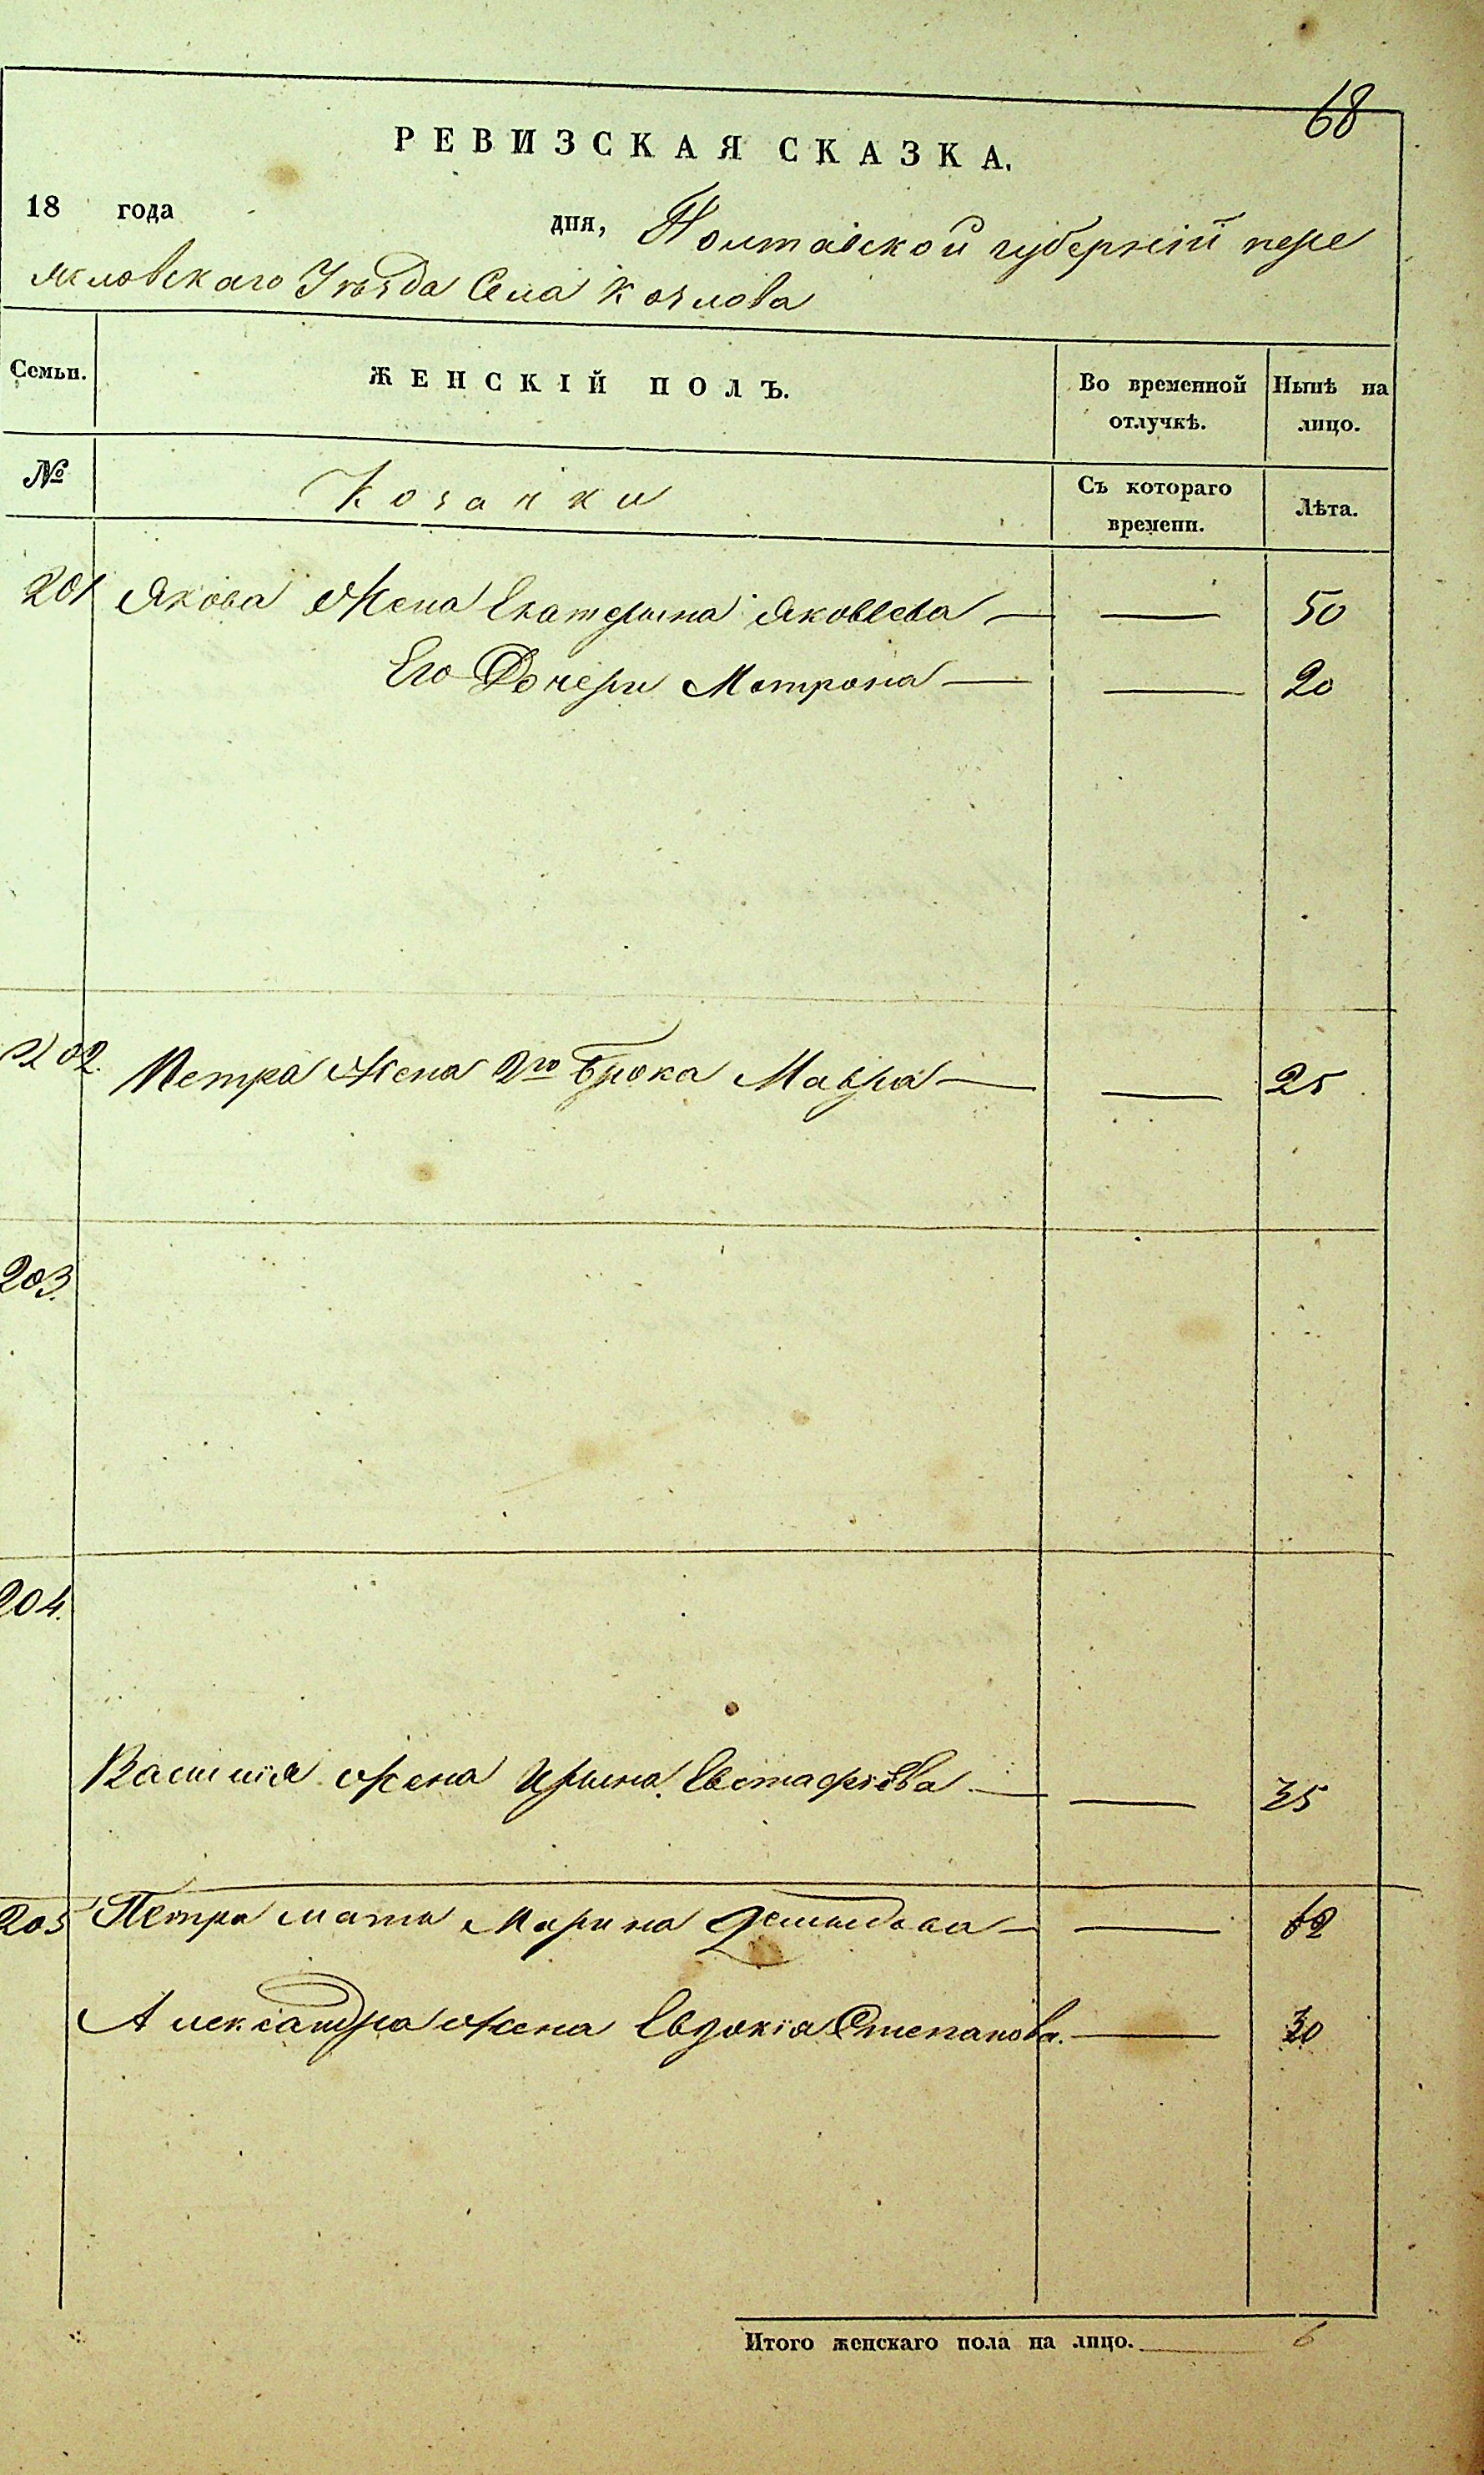 68
РЕВИЗСКАЯ СКАЗКА.
18 года дня, Полтавской губерніи пере
яславскаго Уѣзда Села Козлова
Семьи. ЖЕНСКІЙ ПОЛЪ. Во временной отлучкѣ. Нынѣ на лицо.
№ Козачки Съ котораго времени. Лѣта.
201 Якова Жена Екатерина Яковлева — — 50
Его Дочери Мотрона — — 20
202. Петра Жена 2го брака Мавра — — 25
203.
204.
Василія жена Ирина Евстафіева — — 35
205 Петра мати Марина Демидова — — 62
Александра жена Евдокіа Степанова. — 30
Итого женскаго пола на лицо. 6